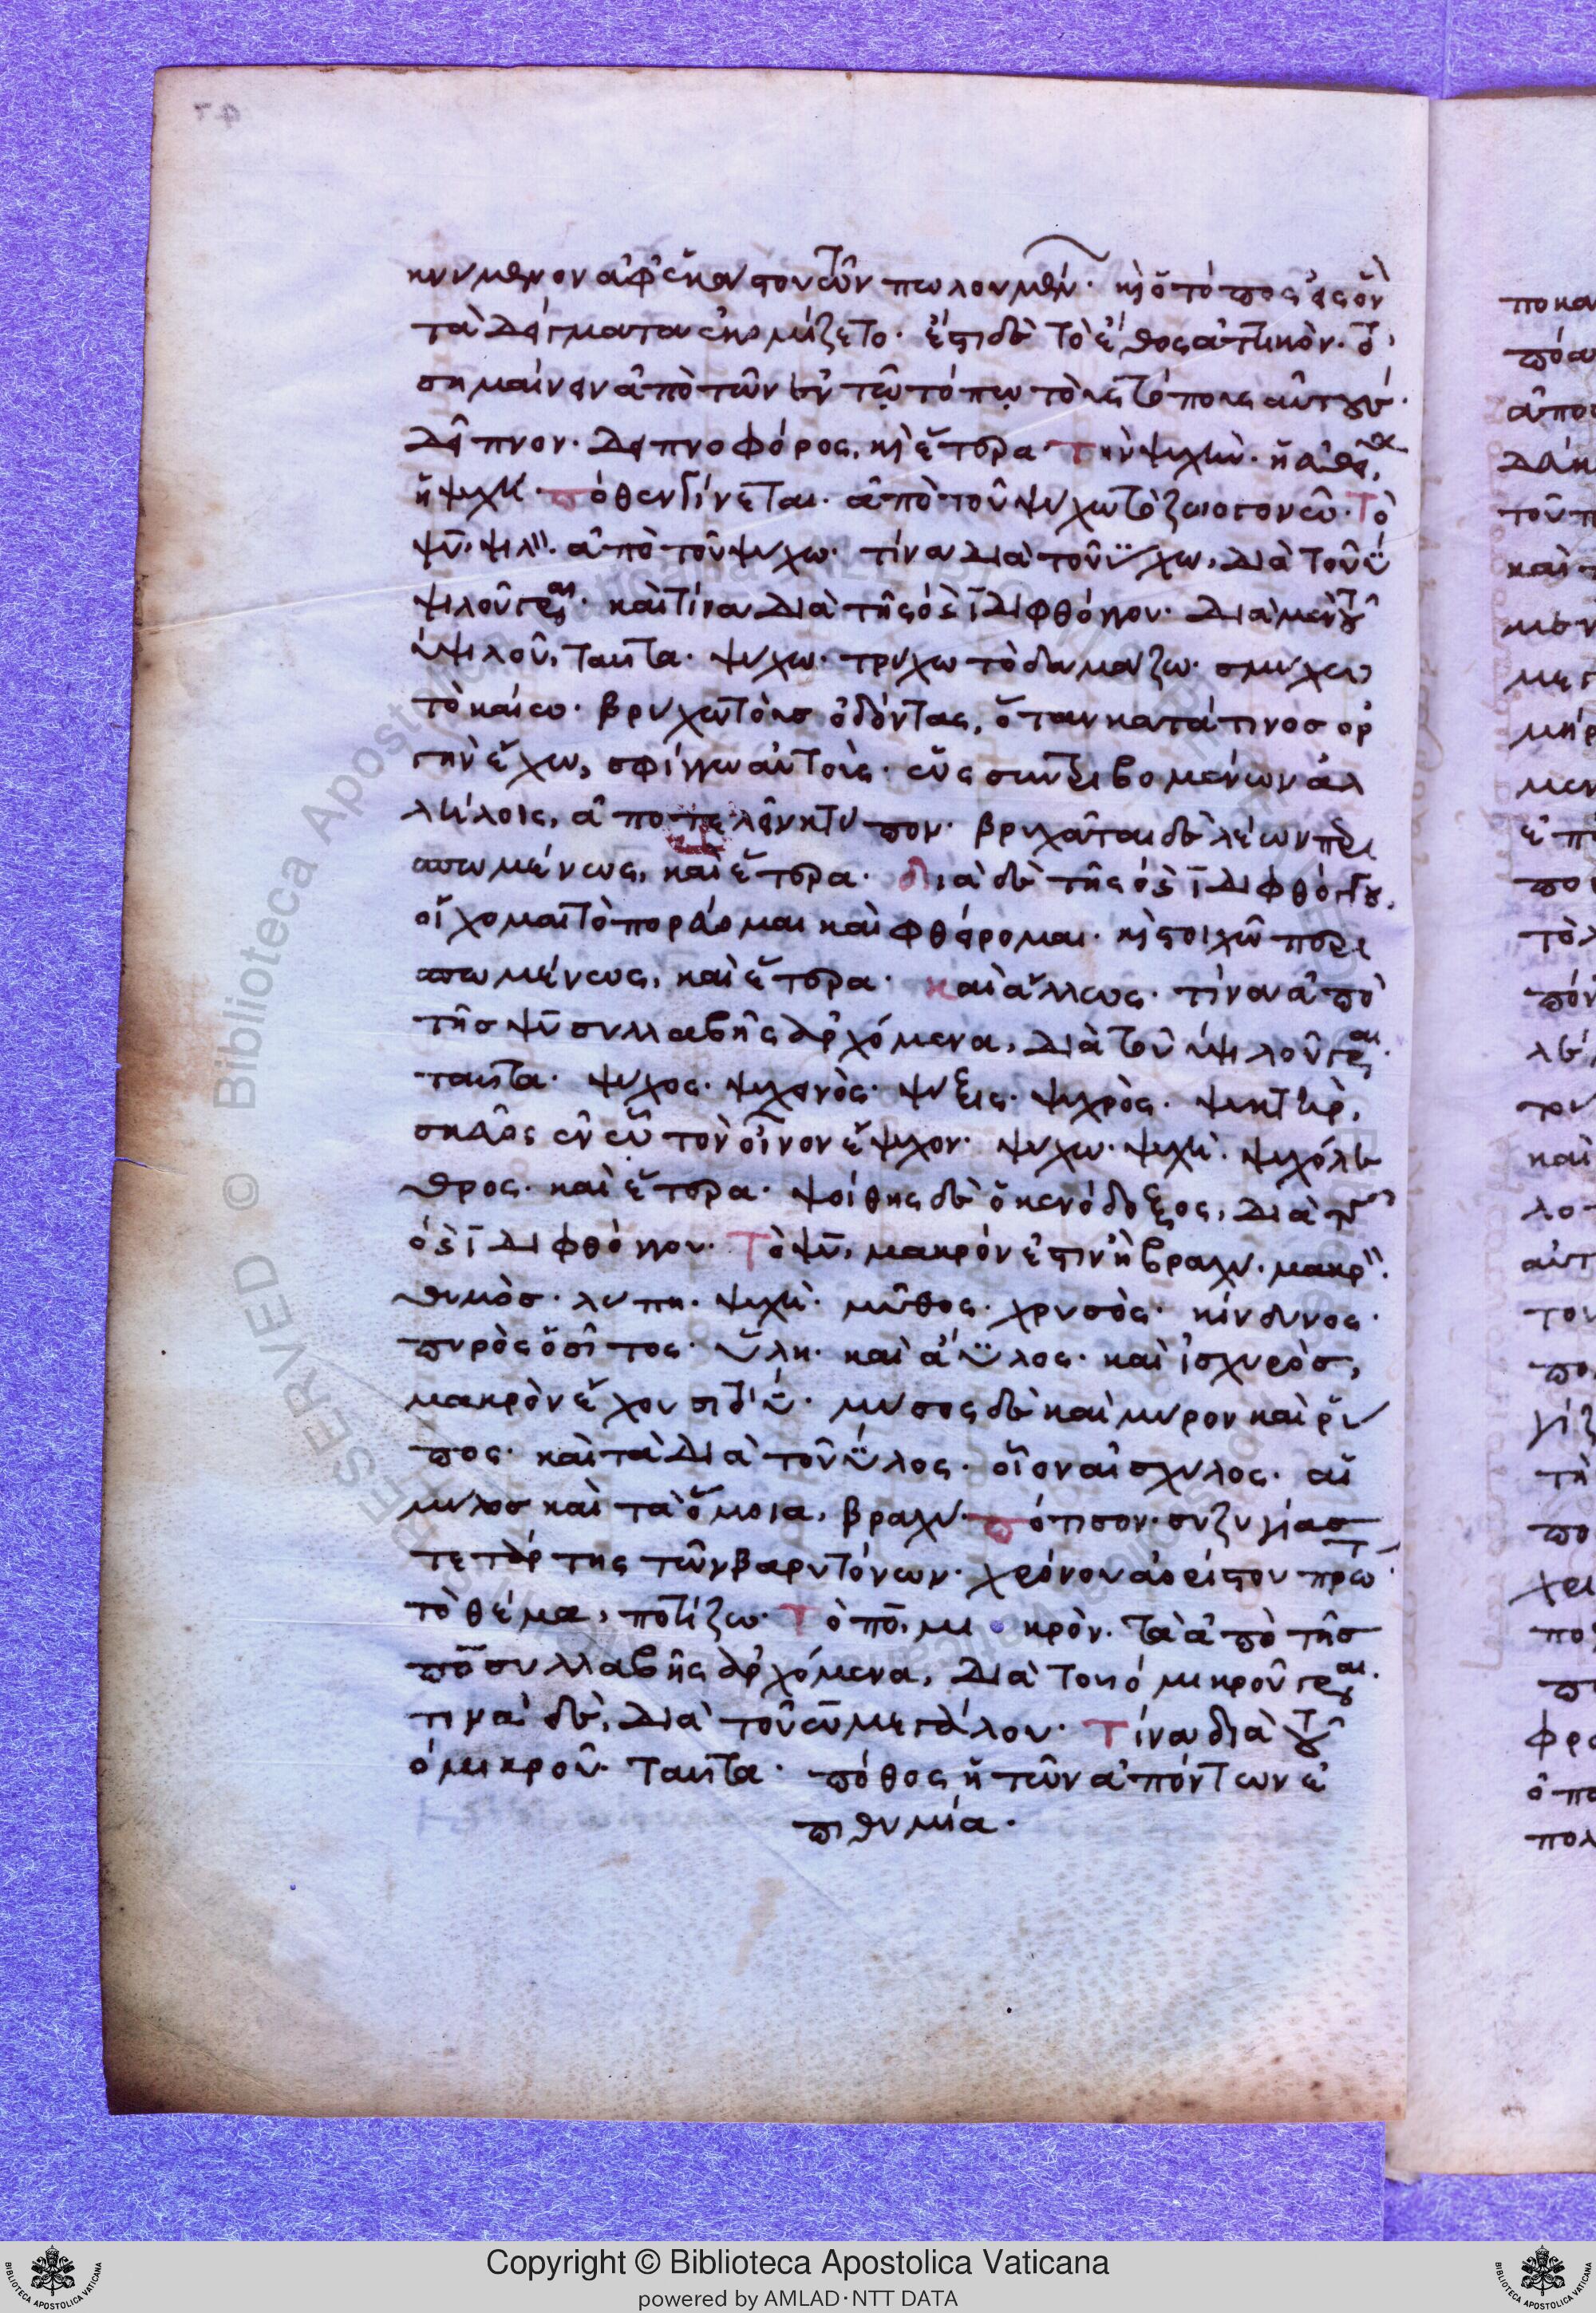 κνύμενον ἀφ' ἑκάστου τῶν πωλουμένων· καὶ ὁ τόπος εἰς ὃν
τὰ δείγματα ἐκομίζετο· ἔστι δὲ τὸ ἔθος ἀττικὸν· τὸ
σημαίνειν ἀπὸ τῶν ἐν τῷ τόπῳ τοὺς τόπους αὐτούς·
δεῖπνον· δειπνοφόρος, καὶ ἕτερα· Τὴν ψυχὴν· ἡ εὐθεῖα,
ἡ ψυχή· πόθεν γίνεται· ἀπὸ τοῦ ψύχω τὸ ζωογονῶ· Τὸ
ψῦ· ψιλὸν· ἀπὸ τοῦ ψύχω· τίνα διὰ τοῦ ϋχω, διὰ τοῦ ϋ
ψιλοῦ γράφεται· καὶ τίνα διὰ τῆς ὀϊ διφθόγγου· διὰ μὲν τοῦ
ὑψιλοῦ, ταῦτα· ψύχω· τρύχω τὸ δαμάζω· σμύχω
τὸ καίω· βρύχω τοὺσ ὀδόντας, ὅταν κατά τινοσ ὀρ
γὴν ἔχω, σφίγγω αὐτοὺς· ὡς συντριβομένων ἀλ
λήλοις, ἀποτελεῖν κτύπον· βρυχᾶται δὲ λέων περι
σπωμένως, καὶ ἕτερα· διὰ δὲ τῆς ὀϊ διφθόγγου,
οἴχομαι τὸ πορεύομαι καὶ φθείρομαι· καὶ στοιχῶ περι
σπωμένως, καὶ ἕτερα· καὶ ἄλλως· τίνα ἀπὸ
τῆσ ψῦ συλλαβῆς ἀρχόμενα, διὰ τοῦ ὑψιλοῦ γράφεται·
ταῦτα· ψύχος· ψυχεινὸς· ψύξις· ψυχρὸς· ψυκτὴρ,
σκεῦος ἐν ᾧ τὸν οἶνον ἔψυχον· ψύχω· ψυχή· ψυχόλε
θρος· καὶ ἕτερα· ψοίθης δὲ ὁ κενόδοξος, διὰ τῆς
ὀϊ διφθόγγου· Τὸ ψῦ, μακρόν ἐστιν ἢ βραχύ· μακρὸν·
θυμὸσ· λύπη· ψυχή· μῦθος· χρυσὸς· κίνδυνος·
πυρὸς ὁ σῖτος· ὕλη· καὶ ἄϋλος· καὶ ἰσχυρὸσ,
μακρὸν ἔχουσι τὸ ῦ· μύσος δὲ καὶ μύρον καὶ ῥύ
πος· καὶ τὰ διὰ τοῦ ϋλος· οἷον αἰσχύλος· αἵ
μυλοσ καὶ τὰ ὅμοια, βραχύ· πότισον· συζυγίασ
τετάρτης τῶν βαρυτόνων· χρόνου ἀορίστου πρώτου·
τὸ θέμα, ποτίζω· Τὸ πο, μικρὸν· τὰ ἀπὸ τῆσ
πο συλλαβῆς ἀρχόμενα, διὰ τοῦ ὀ μικροῦ γράφεται·
τινὰ δὲ, διὰ τοῦ ω μεγάλου· Τίνα διὰ τοῦ
ὀ μικροῦ· ταῦτα· πόθος ἡ τῶν ἀπόντων ἐ
πιθυμία·